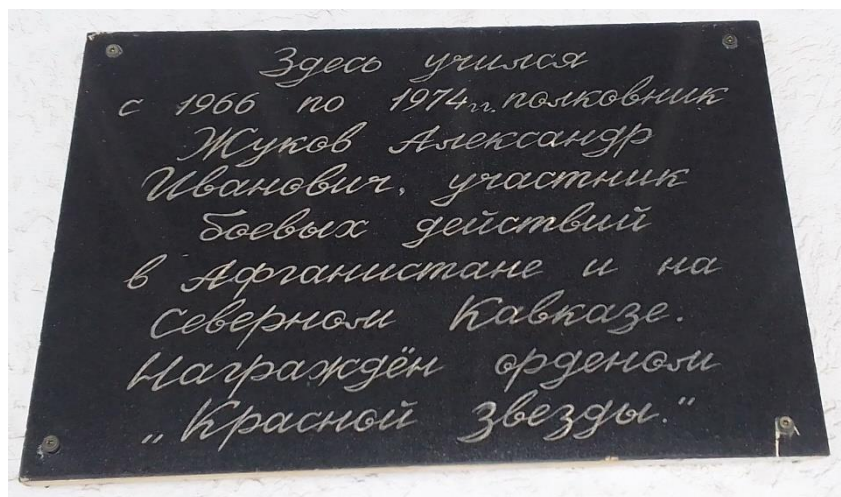 Здесь учился
с 1966 по 1974гг. полковник
Жуков Александр
Иванович, участник
боевых действий
в Афганистане и на
Северном Кавказе.
Награждён орденом
„Красной звезды.“